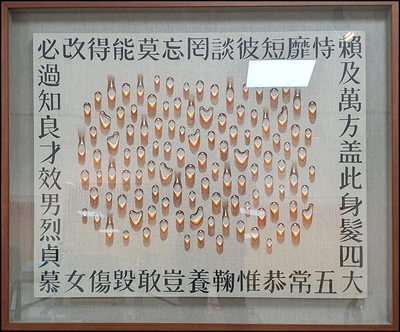 賴及萬方盖此身髮四大
五常恭惟鞠養豈敢毀傷女
慕貞烈男效才良知過必
改得能莫忘罔談彼短靡恃